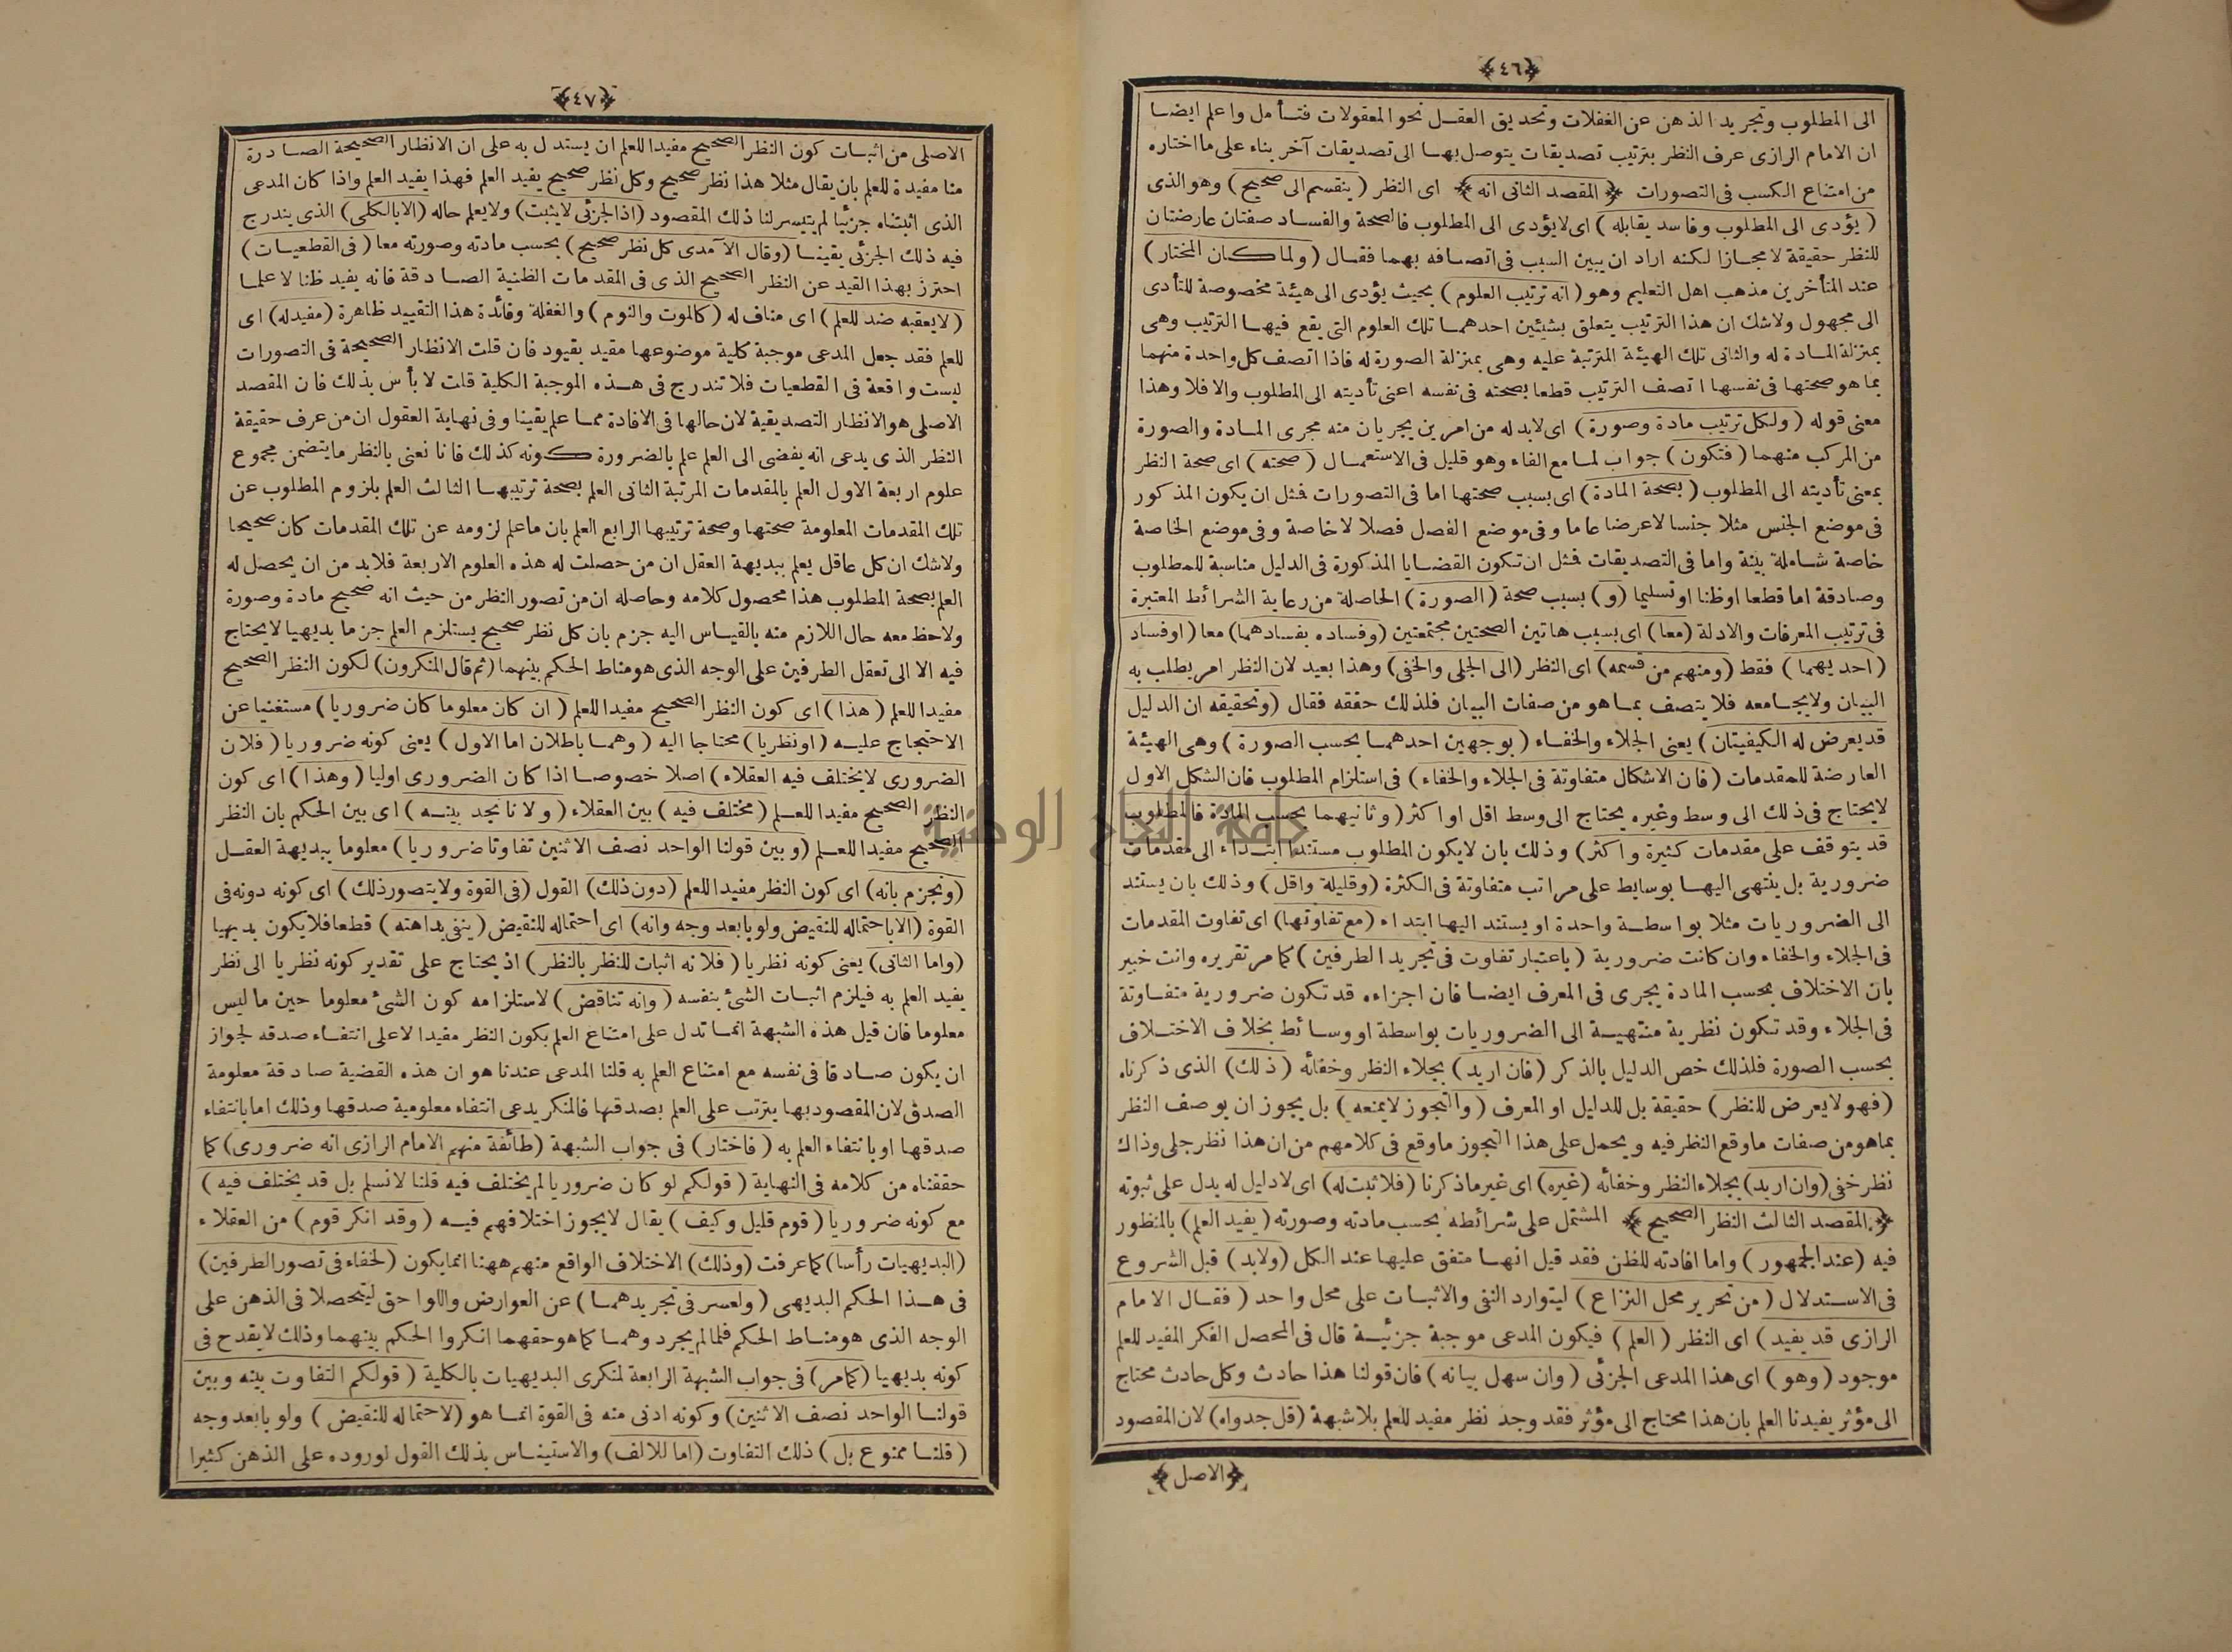 ﴿٤٦﴾
الى المطلوب وتجريد الذهن عن الغفلات وتحديق العقل نحو المعقولات فتأمل واعلم ايضا
ان الامام الرازى عرف النظر بترتيب تصديقات يتوصل بها الى تصديقات آخر بناء على ما اختاره
من امتناع الكسب فى التصورات ﴿ المقصد الثانى انه ﴾ اى النظر ( ينقسم الى صحيح ) وهو الذى
( يؤدى الى المطلوب وفاسد يقابله ) اى لا يؤدى الى المطلوب فالصحة والفساد صفتان عارضتان
للنظر حقيقة لا مجازا لكنه اراد ان يبين السبب فى اتصافه بهما فقال ( ولما كان المختار )
عند المتأخرين مذهب اهل التعليم وهو ( انه ترتيب العلوم ) بحيث يؤدى الى هيئة مخصوصة للتأدى
الى مجهول ولاشك ان هذا الترتيب يتعلق بشيئين احدهما تلك العلوم التى يقع فيها الترتيب وهى
بمنزلة المادة له والثانى تلك الهيئة المترتبة عليه وهى بمنزلة الصورة له فاذا اتصف كل واحدة منهما
بما هو صحتها فى نفسها اتصف الترتيب قطعا بصحته فى نفسه اعنى تأديته الى المطلوب والا فلا وهذا
معنى قوله ( ولكل ترتيب مادة وصورة ) اى لابد له من امرين يجريان منه مجرى المادة والصورة
من المركب منهما ( فتكون ) جواب لما مع الفاء وهو قليل فى الاستعمال ( صحته ) اى صحة النظر
بمعنى تأديته الى المطلوب ( بصحة المادة ) اى بسبب صحتها اما فى التصورات فمثل ان يكون المذكور
فى موضع الجنس مثلا جنسا لا عرضا عاما وفى موضع الفصل فصلا لا خاصة وفى موضع الخاصة
خاصة شاملة بينة واما فى التصديقات فمثل ان تكون القضايا المذكورة فى الدليل مناسبة للمطلوب
وصادقة اما قطعا اوظنا اوتسليما (و) بسبب صحة ( الصورة ) الحاصلة من رعاية الشرائط المعتبرة
فى ترتيب المعرفات والادلة ( معا ) اى بسبب هاتين الصحتين مجتمعتين (وفساده بفسادهما) معا ( اوفساد
( احديهما ) فقط ( ومنهم من قسمه ) اى النظر ( الى الجلى والخفى ) وهذا بعيد لان النظر امر يطلب به
البيان ولا يجامعه فلا يتصف بما هو من صفات البيان فلذلك حققه فقال ( وتحقيقه ان الدليل
قديعرض له الكيفيتان ) يعنى الجلاء والخفاء ( بوجهين احدهما بحسب الصورة ) وهى الهيئة
العارضة للمقدمات ( فان الاشكال متفاوتة فى الجلاء والخفاء ) فى استلزام المطلوب فان الشكل الاول
لايحتاج فى ذلك الى وسط وغيره يحتاج الى وسط اقل او اكثر ( وثانيهما بحسب المادة فالمطلوب
قد يتوقف على مقدمات كثيرة واكثر ) وذلك بان لايكون المطلوب مستندا ابتداء الى مقدمات
ضرورية بل ينتهى اليها بوسايط على مراتب متفاوتة فى الكثرة ( وقليلة واقل ) وذلك بان يستند
الى الضروريات مثلا بواسطة واحدة او يستند اليها ابتداء ( مع تفاوتها ) اى تفاوت المقدمات
فى الجلاء والخفاء وان كانت ضرورية ( باعتبار تفاوت فى تجريد الطرفين ) كما مر تقريره وانت خبير
بان الاختلاف بحسب المادة يجرى فى المعرف ايضا فان اجزاءه قد تكون ضرورية متفاوتة
فى الجلاء وقد تكون نظرية منتهية الى الضروريات بواسطة او وسائط بخلاف الاختلاف
بحسب الصورة فلذلك خص الدليل بالذكر ( فان اريد ) بجلاء النظر وخفائه ( ذلك ) الذى ذكرناه
( فهو لا يعرض للنظر ) حقيقة بل للدليل او المعرف ( والتجوز لا يمنعه ) بل يجوز ان يوصف النظر
بما هو من صفات ما وقع النظر فيه ويحمل على هذا التجوز ما وقع فى كلامهم من ان هذا نظر جلى وذاك
نظر خفى (وان اريد) بجلاء النظر وخفائه ( غيره ) اى غير ما ذكرنا ( فلا ثبت له ) اى لادليل له يدل على ثبوته
﴿ المقصد الثالث النظر الصحيح ﴾ المشتمل على شرائطه بحسب مادته وصورته ( يفيد العلم ) بالمنظور
فيه ( عند الجمهور ) واما افادته للظن فقد قيل انها متفق عليها عند الكل ( ولابد ) قبل الشروع
فى الاستدلال ( من تحرير محل النزاع ) ليتوارد النفى والاثبات على محل واحد ( فقال الامام
الرازى قد يفيد ) اى النظر ( العلم ) فيكون المدعى موجبة جزئية قال فى المحصل الفكر المفيد للعلم
موجود ( وهو ) اى هذا المدعى الجزئى ( وان سهل بيانه ) فان قولنا هذا حادث وكل حادث محتاج
الى مؤثر يفيدنا العلم بان هذا محتاج الى مؤثر فقد وجد نظر مفيد للعلم بلاشبهة (قل جدواه) لان المقصود
﴿ الاصل ﴾
﴿٤٧﴾
الاصلى من اثبات كون النظر الصحيح مفيدا للعلم ان يستدل به على ان الانظار الصحيحة الصادرة
منا مفيدة للعلم بان يقال مثلا هذا نظر صحيح وكل نظر صحيح يفيد العلم فهذا يفيد العلم واذا كان المدعى
الذى اثبتناه جزئيا لم يتيسر لنا ذلك المقصود ( اذ الجزئى لا يثبت ) ولايعلم حاله ( الا بالكلى ) الذى يندرج
فيه ذلك الجزئى يقينا ( وقال الآمدى كل نظر صحيح ) بحسب مادته وصورته معا ( فى القطعيات )
احترز بهذا القيد عن النظر الصحيح الذى فى المقدمات الظنية الصادقة فانه يفيد ظنا لاعلما
( لا يعقبه ضد للعلم ) اى مناف له ( كالموت والنوم ) والغفلة وفائدة هذا التقييد ظاهرة (مفيدله) اى
للعلم فقد جعل المدعى موجبة كلية موضوعها مقيد بقيود فان قلت الانظار الصحيحة فى التصورات
ليست واقعة فى القطعيات فلا تندرج فى هذه الموجبة الكلية قلت لا بأس بذلك فان المقصد
الاصلى هو الانظار التصديقية لان حالها فى الافادة مما علم يقينا وفى نهاية العقول ان من عرف حقيقة
النظر الذى يدعى انه يفضى الى العلم علم بالضرورة كونه كذلك فانا نعنى بالنظر مايتضمن مجموع
علوم اربعة الاول العلم بالمقدمات المرتبة الثانى العلم بصحة ترتيبها الثالث العلم بلزوم المطلوب عن
تلك المقدمات المعلومة صحتها وصحة ترتيبها الرابع العلم بان ماعلم لزومه عن تلك المقدمات كان صحيحا
ولاشك ان كل عاقل يعلم ببديهة العقل ان من حصلت له هذه العلوم الاربعة فلابد من ان يحصل له
العلم بصحة المطلوب هذا محصول كلامه وحاصله ان من تصور النظر من حيث انه صحيح مادة وصورة
ولاحظ معه حال اللازم منه بالقياس اليه جزم بان كل نظر صحيح يستلزم العلم جزما بديهيا لايحتاج
فيه الا الى تعقل الطرفين على الوجه الذى هو مناط الحكم بينهما (ثم قال المنكرون) لكون النظر الصحيح
مفيدا للعلم ( هذا ) اى كون النظر الصحيح مفيدا للعلم ( ان كان معلوما كان ضروريا ) مستغنيا عن
الاحتجاج عليه ( اونظريا ) محتاجا اليه ( وهما باطلان اما الاول ) يعنى كونه ضروريا ( فلان
الضرورى لا يختلف فيه العقلاء ) اصلا خصوصا اذا كان الضرورى اوليا ( وهذا ) اى كون
النظر الصحيح مفيدا للعلم ( مختلف فيه ) بين العقلاء ( ولانا نجد بينه ) اى بين الحكم بان النظر
الصحيح مفيدا للعلم ( وبين قولنا الواحد نصف الاثنين تفاوتا ضروريا ) معلوما ببديهة العقل
( ونجزم بانه ) اى كون النظر مفيدا للعلم ( دون ذلك ) القول ( فى القوة ولايتصور ذلك ) اى كونه دونه فى
القوة ( الا باحتماله للنقيض ولو بابعد وجه وانه ) اى احتماله للنقيض ( ينفى بداهته ) قطعا فلا يكون بديهيا
( واما الثانى ) يعنى كونه نظريا ( فلانه اثبات للنظر بالنظر ) اذ يحتاج على تقدير كونه نظريا الى نظر
يفيد العلم به فيلزم اثبات الشئ بنفسه ( وانه تناقض ) لاستلزامه كون الشئ معلوما حين ما ليس
معلوما فان قيل هذه الشبهة انما تدل على امتناع العلم بكون النظر مفيدا لا على انتفاء صدقه لجواز
ان يكون صادقا فى نفسه مع امتناع العلم به قلنا المدعى عندنا هو ان هذه القضية صادقة معلومة
الصدق لان المقصود بها يترتب على العلم بصدقها فالمنكر يدعى انتفاء معلومية صدقها وذلك اما بانتفاء
صدقها او بانتفاء العلم به ( فاختار ) فى جواب الشبهة ( طائفة منهم الامام الرازى انه ضرورى ) كما
حققناه من كلامه فى النهاية ( قولكم لو كان ضروريا لم يختلف فيه قلنا لانسلم بل قد يختلف فيه )
مع كونه ضروريا ( قوم قليل وكيف ) يقال لايجوز اختلافهم فيه ( وقد انكر قوم ) من العقلاء
( البديهيات رأسا ) كما عرفت ( وذلك ) الاختلاف الواقع منهم ههنا انما يكون ( لخفاء فى تصور الطرفين )
فى هذا الحكم البديهى ( ولعسر فى تجريدهما ) عن العوارض واللواحق ليتحصلا فى الذهن على
الوجه الذى هو مناط الحكم فلما لم يجردوهما كما هو حقهما انكروا الحكم بينهما وذلك لا يقدح فى
كونه بديهيا ( كما مر ) فى جواب الشبهة الرابعة لمنكرى البديهيات بالكلية ( قولكم التفاوت بينه وبين
قولنا الواحد نصف الاثنين ) وكونه ادنى منه فى القوة انما هو ( لاحتماله للنقيض ) ولو بابعد وجه
( قلنا ممنوع بل ) ذلك التفاوت ( اما للالف ) والاستيناس بذلك القول لوروده على الذهن كثيرا
جامعة النجاح الوطنية